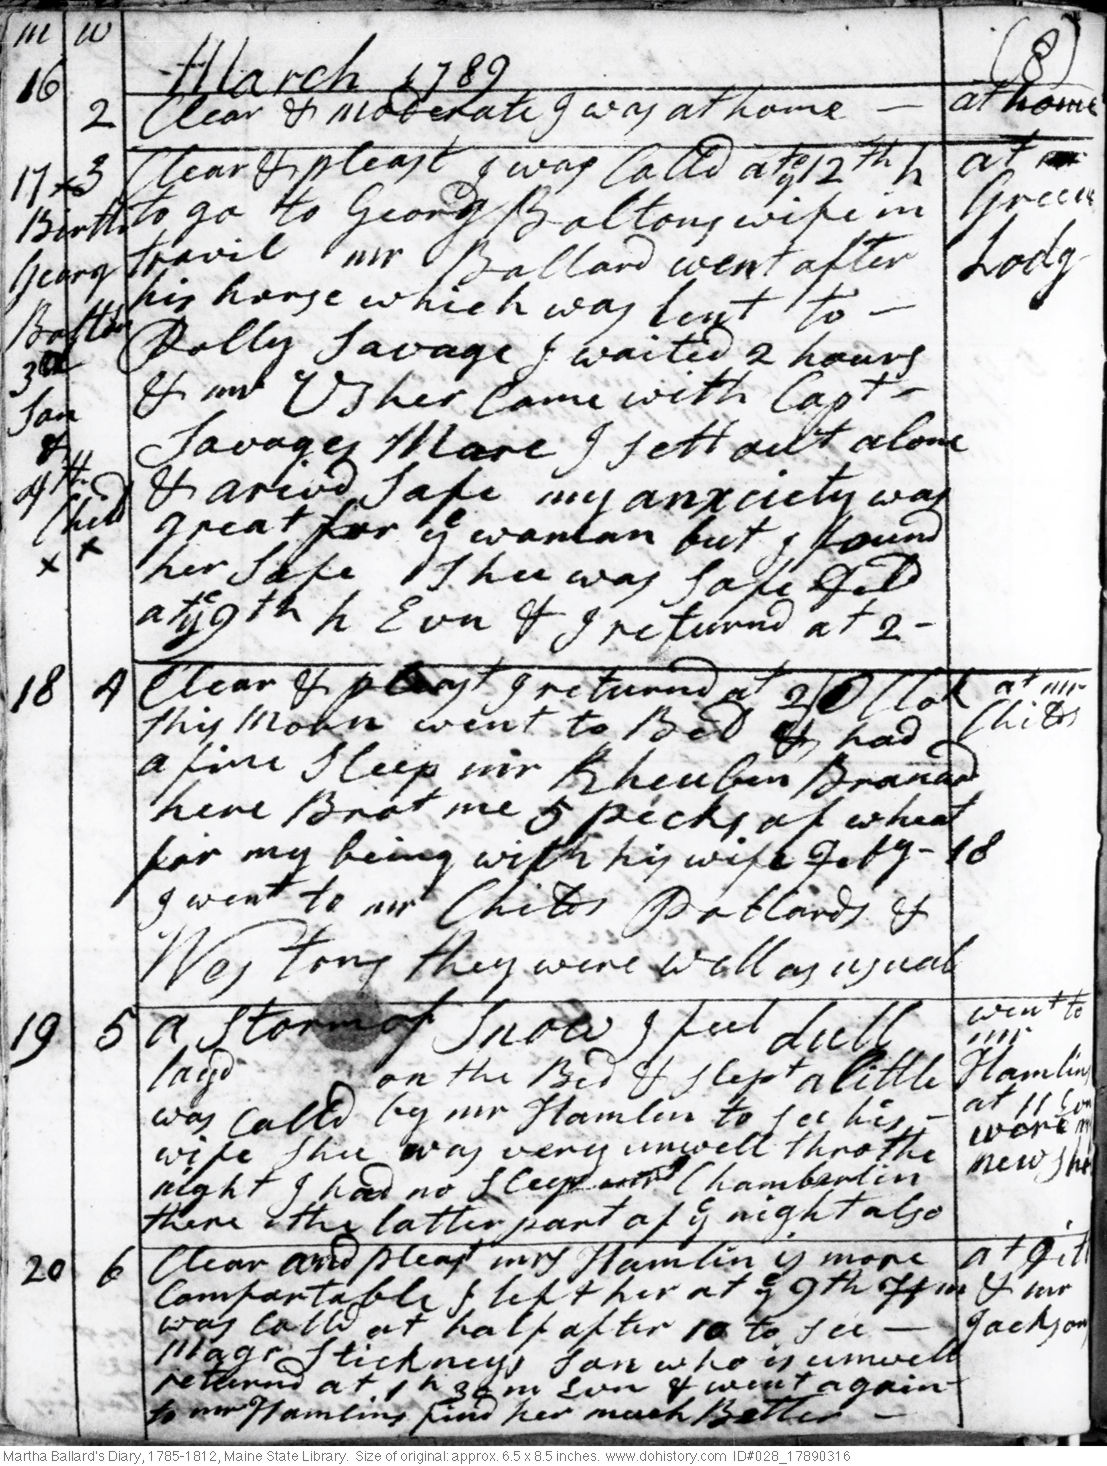 m w
March 1789
(8)
16 2 Clear & moderate I was at home — at home
17 x 3 Clear & pleast I was Calld at ye 12th h
at
Green
Lodg
Birth
Georg
Bolton
3d
Son
&
4th
Child
x x
to go to Georg Boltons wife in
travil mr Ballard went after
his horse which was lent to —
Dolly Savage I waited 2 hours
& mr Usher Came with Capt -
Savages Mare I sett out alone
& arivd Safe my anxciety was
great for ye woman but I found
her Safe Shee was Safe Deld
at ye 9th h Evn & I returnd at 2 -
18 4 Clear & pleast I returnd at 2 O Clok
at mr
Chitos
this Morn went to Bed & had
a fine Sleep mr Rheuben Branard
here Brot me 5 pecks of wheat
for my being with his wife Feby - 18
I went to mr Chitos Pollards &
Westons they were well as usual
19 5 a Storm of Snow I feel dull
went to
mr
Hamlins
at 11
wore my
new
layd on the Bed & slept a little
was Calld by mr Hamlin to see his -
wife shee was very unwell thro the
night I had no Sleep Chamberlin
there the latter part of ye night also
20 6 Clear and pleast mrs Hamlin is more
at
& mr
Jackson
Comfortable I left her at ye 9th h m
was Calld at half after 10 to see —
Magr Stickneys Son who is unwell
returnd at 1 h 30 m Evn & went again
to mr Hamlins find her much Better —
Martha Ballard's Diary, 1785-1812, Maine State Library. Size of original: approx. 6.5 x 8.5 inches. www.dohistory.com ID#028_17890316